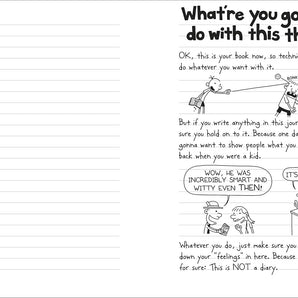 What're you go
do with this th
OK, this is your book now, so techni
do whatever you want with it.
But if you write anything in this jour
sure you hold on to it. Because one da
gonna want to show people what you
back when you were a kid.
WOW, HE WAS
INCREDIBLY SMART AND
WITTY EVEN THEN!
IT'S
Whatever you do, just make sure you
down your "feelings" in here. Because
for sure: This is NOT a diary.